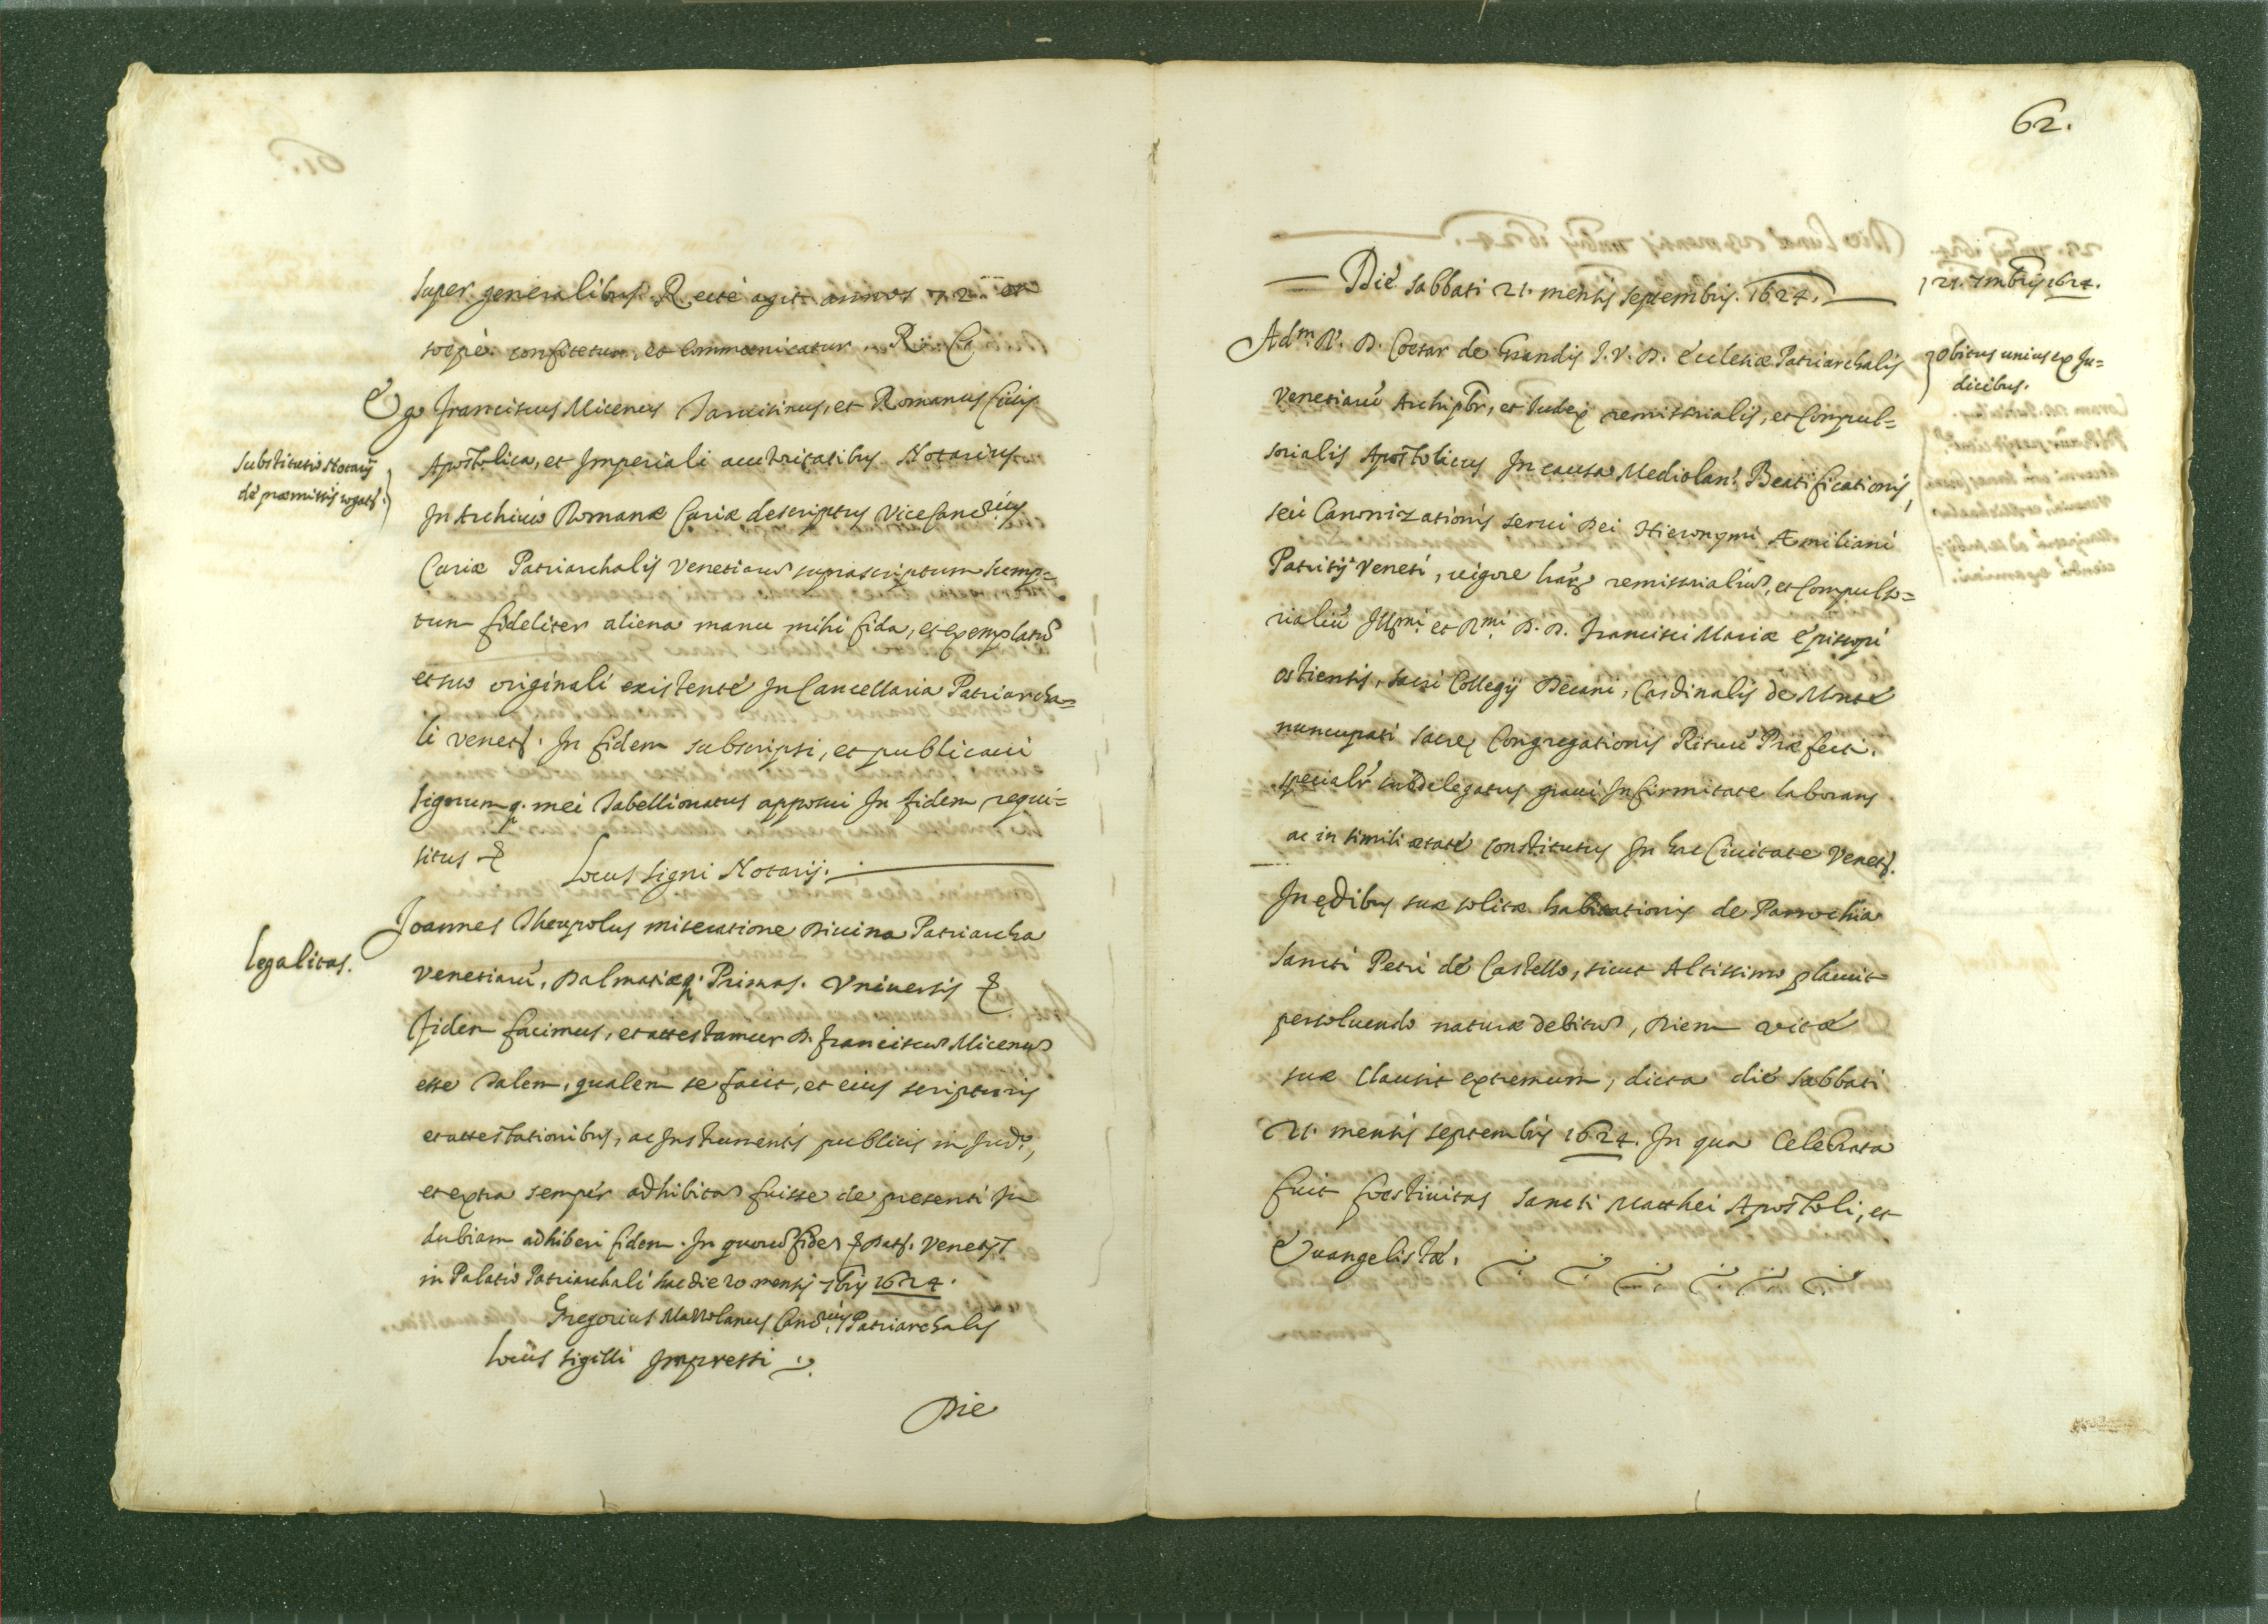 super generalibus. R. recte agit annos 72. et
soepè confitetur, et communicatur. R.
Ego Franciscus Micenus Taruisinus, et Romanus Ciuis
Substitutio Notarij
de præmissis rogati.
Apostolica, et Imperiali auctoritatibus Notarius
In Archiuio Romanæ Curiæ descriptus Vice Canc.rius
Curiæ Patriarchalis Venetiarũ suprascriptum sump=
tum fideliter aliena manu mihi fida, et exemplatũ
et suo originali existente In Cancellaria Patriarcha=
li Venet. In fidem subscripsi, et publicaui
signumq. mei Tabellionatus apposui In fidem requi=
situs &
Locus signi Notarij.
legalitas.
Joannes Theupolus miseratione Diuina Patriarcha
Venetiarũ, Dalmatiæq. Primas. Vniuersis &
fidem facimus, et attestamur D. Franciscum Micenum
esse Talem, qualem se facit, et eius scripturis
et attestationibus, ac Instrumentis publicis in Jud.o,
et extra semper adhibitam fuisse de presenti In
dubiam adhiberi fidem. In quorũ fidem & Dat. Venetijs
in Palatio Patriarchali hac die 20 mensis 7bris 1624.
Gregorius Marcolanus Canc.rius Patriarchalis
Locus sigilli Impressi
Die
62.
Die Sabbati 21. mensis septembris. 1624.
21. 7mbris 1624.
Obitus unius ex Ju=
dicibus.
Adm. R. D. Coesar de Grandis J. V. D. Ecclesiæ Patriarchalis
Venetiarũ Archipbr, et Iudex remissorialis, et Compul=
sorialis Apostolicus In causa Mediolan. Beatificationis,
seu Canonizationis serui Dei Hieronymi Æmiliani
Patritij Veneti, uigore harũ remissorialiũ, et Compulso=
rialiũ Illmi. et Rmi. D. D. Francisci Mariæ Episcopi
ostiensis, sacri Collegij Decani, Cardinalis de Monte
nuncupati sacrę Congregationis Rituũ Præfecti.
specialr subdelegatus graui Infirmitate laborans
ac in simili ætate constitutus In hac Ciuitate Venet.
In ędibus suæ solitæ habitationis de Parrochia
Sancti Petri de Castello, sicut Altissimo placuit
persoluendo naturæ debitũ, Diem vitæ
suæ clausit extremum, dicta die Sabbati
21. mensis septembris 1624. In qua Celebrata
fuit foestiuitas Sancti Matthei Apostoli, et
Euangelistæ.